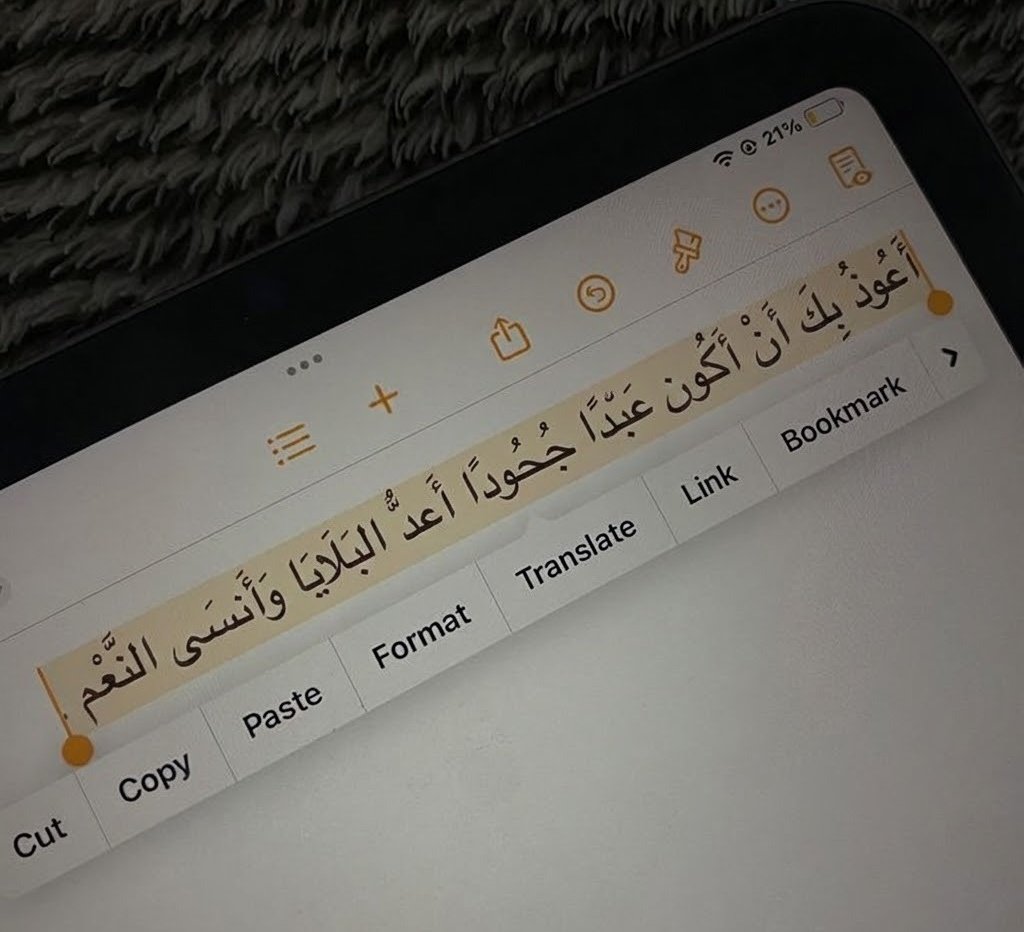 21%
أَعُوُذ بِكَ أَنْ أَكُون عَبْدًا جُحُودًا أَعدُّ البَلَايَا وَأَنسَى النَّعْم .
Cut Copy Paste Format Translate Link Bookmark